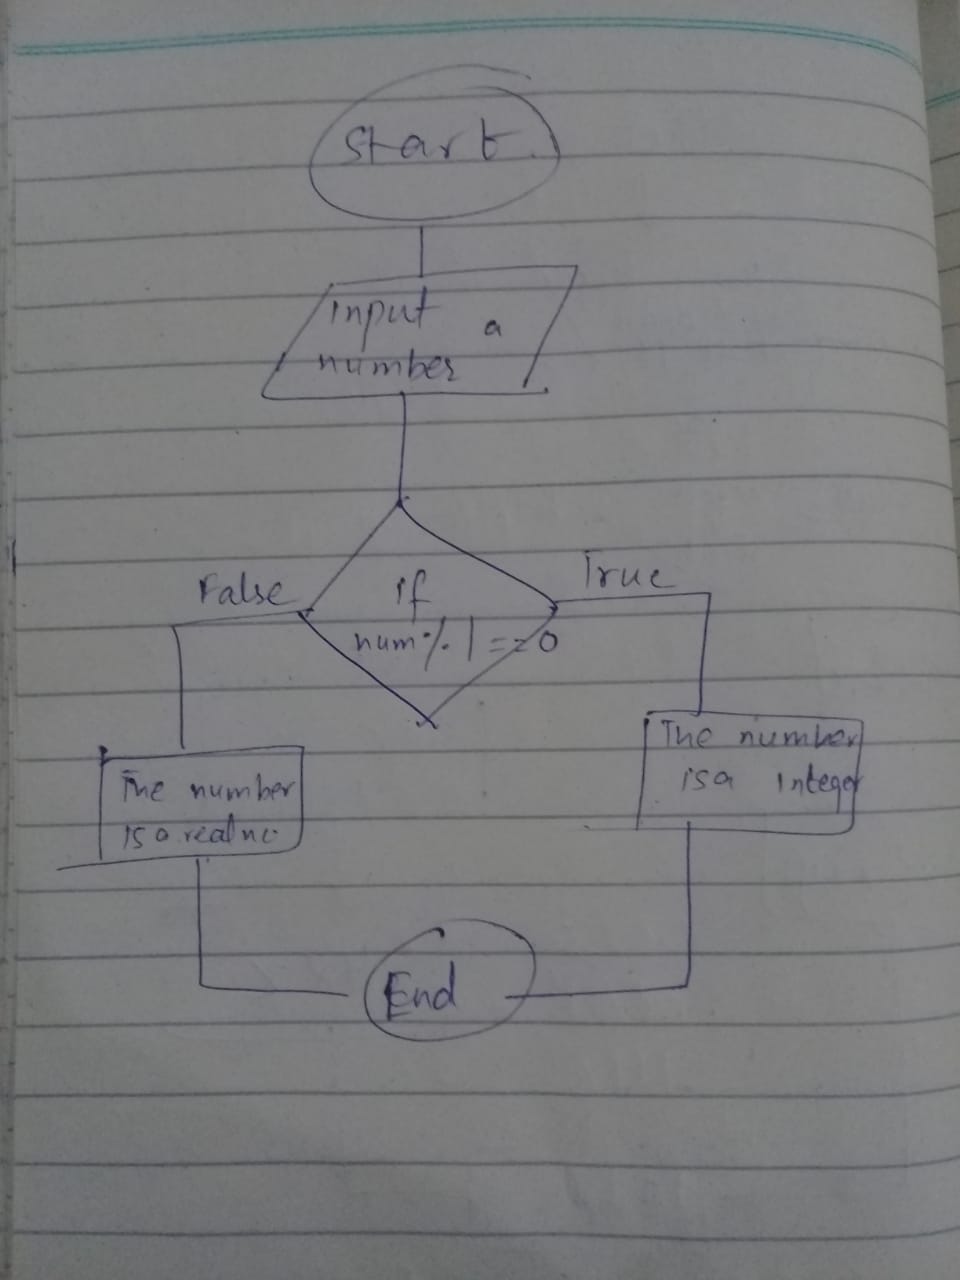 Start
Input a
number
False
True
if
num % 1 == 0
The number
is a real no
The number
is a Integer
End